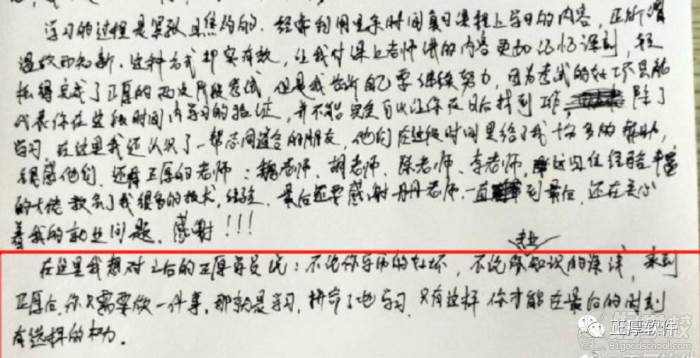 学习的过程是紧张且焦灼的。经常利用晚上时间复习课程上当日的内容，正所谓
温故而知新。这种方式却实有效，让我对课上老师讲的内容更加记忆深刻，轻
松得完成了正厚的两次阶段考试，但是我告诉自己要继续努力，因为考试的好坏只能
代表你在这段时间内学习的验证，并不能完全可以让你在日后找到工作，除了
学习，在这里我还认识了一帮志同道合的朋友，他们在这段时间里给了我很多的帮助，
很感他们，还有正厚的老师：魏老师，胡老师，陈老师，李老师，这几位经验丰富
的大佬教会了我很多的技术，经验，最后还要感谢丹丹老师，一直到最后，还在关心
着我的就业问题。感谢！！！
专业
在这里我想对之后的正厚学员说：不论你学历的好坏，不论知识的深浅，来到
正厚后，你只需要做一件事，那就是学习，拼命了地学习，只有这样你才能在最后的时刻
有选择的权力。
正厚软件
91goodschool.com